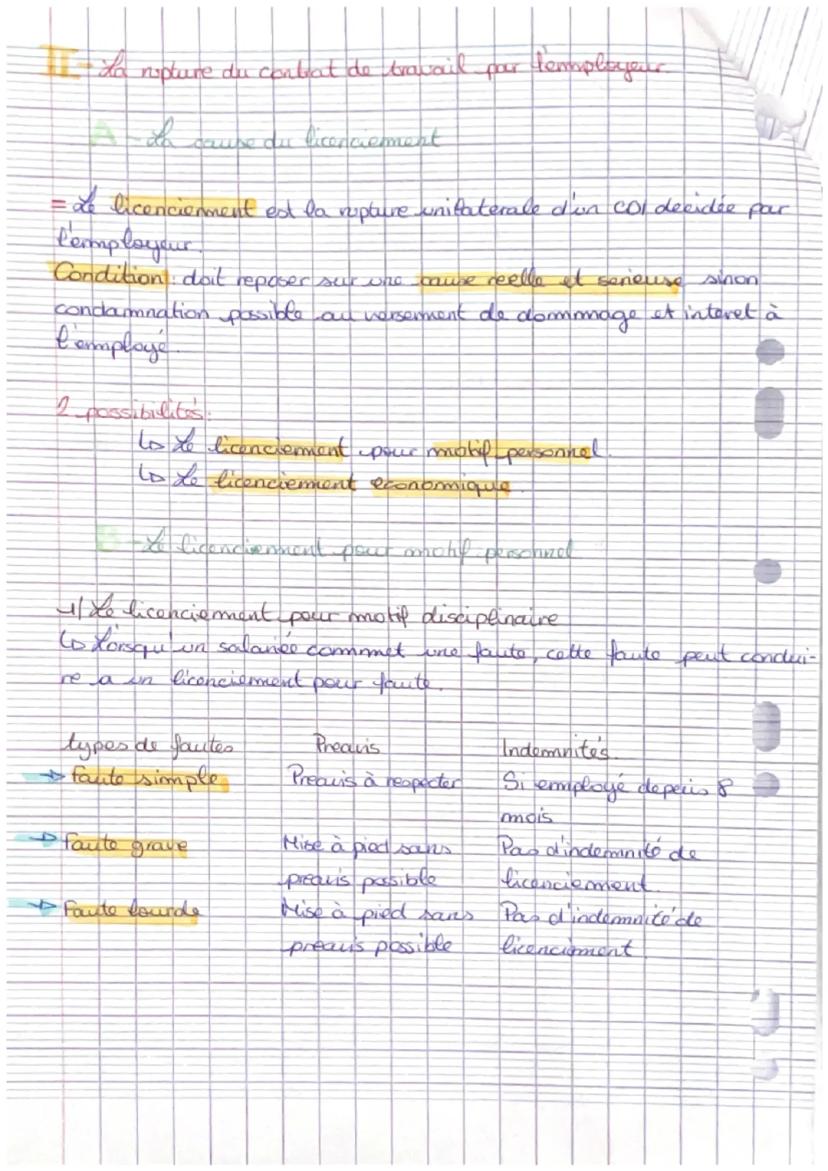 II - La rupture du contrat de travail par l'employeur.
A - La cause du licenciement
= Le licenciement est la rupture unilaterale d'un CDI decidée par
l'employeur.
Condition : doit reposer sur une cause reelle et serieuse sinon
condamnation possible au versement de dommage et interet à
l'employé.
2 possibilités:
↳ Le licenciement pour motif personnel.
↳ Le licenciement economique.
B - Le licenciement pour motif personnel
1/ Le licenciement pour motif disciplinaire
↳ Lorsqu'un salariée commet une faute, cette faute peut condui-
re a un licenciement pour faute.
types de fautes Preavis Indemnités.
→ faute simple Preavis à respecter Si employé depuis 8
mois
→ faute grave Mise à pied sans Pas d'indemnité de
preavis possible licenciement.
→ Faute lourde Mise à pied sans Pas d'indemnité de
preavis possible licenciement.